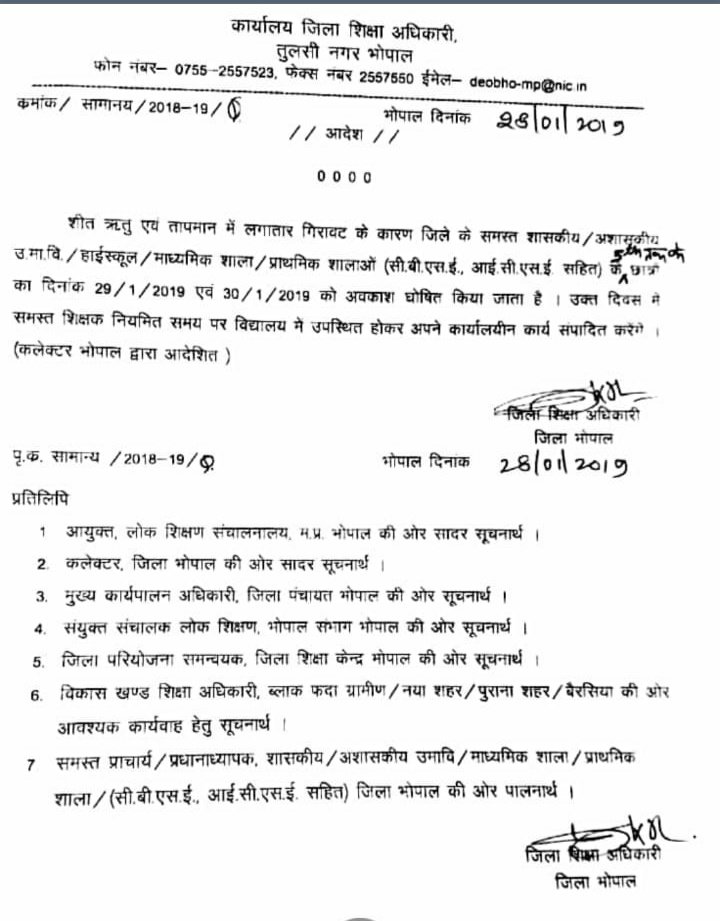 कार्यालय जिला शिक्षा अधिकारी,
तुलसी नगर भोपाल
फोन नंबर– 0755-2557523, फेक्स नंबर 2557550 ईमेल– deobho-mp@nic.in
कमांक/ सामानय/2018-19/
भोपाल दिनांक 28/01/2019
// आदेश //
0 0 0 0
शीत ऋतु एवं तापमान में लगातार गिरावट के कारण जिले के समस्त शासकीय/अशासकीय
उ.मा.वि./हाईस्कूल/माध्यमिक शाला/प्राथमिक शालाओं (सी.बी.एस.ई., आई.सी.एस.ई. सहित) के 5th तक के छात्रो
का दिनांक 29/1/2019 एवं 30/1/2019 को अवकाश घोषित किया जाता है । उक्त दिवस मे
समस्त शिक्षक नियमित समय पर विद्यालय मे उपस्थित होकर अपने कार्यालयीन कार्य संपादित करेंगे ।
(कलेक्टर भोपाल द्वारा आदेशित )
जिला शिक्षा अधिकारी
जिला भोपाल
पृ.क. सामान्य /2018-19/
भोपाल दिनांक 28/01/2019
प्रतिलिपि
1 आयुक्त, लोक शिक्षण संचालनालय, म.प्र. भोपाल की ओर सादर सूचनार्थ ।
2. कलेक्टर, जिला भोपाल की ओर सादर सूचनार्थ ।
3. मुख्य कार्यपालन अधिकारी, जिला पंचायत भोपाल की ओर सूचनार्थ ।
4. संयुक्त संचालक लोक शिक्षण, भोपाल संभाग भोपाल की ओर सूचनार्थ ।
5. जिला परियोजना समन्वयक, जिला शिक्षा केन्द्र भोपाल की ओर सूचनार्थ ।
6. विकास खण्ड शिक्षा अधिकारी, ब्लाक फदा ग्रामीण/नया शहर/पुराना शहर/बैरसिया की ओर
आवश्यक कार्यवाह हेतु सूचनार्थ ।
7 समस्त प्राचार्य/प्रधानाध्यापक, शासकीय/अशासकीय उमावि/माध्यमिक शाला/प्राथमिक
शाला/(सी.बी.एस.ई., आई.सी.एस.ई. सहित) जिला भोपाल की ओर पालनार्थ ।
जिला शिक्षा अधिकारी
जिला भोपाल